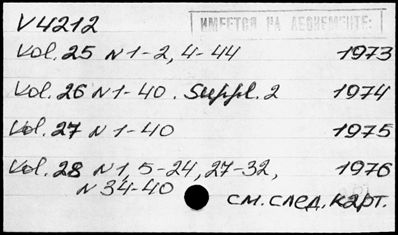 V4212
ИМЕЕТСЯ НА
Vol. 25 N 1-2, 4-44 1973
Vol. 26 N 1-40. Suppl. 2 1974
Vol. 27 N 1-40 1975
Vol. 28 N 1, 5-24, 27-32, 1976
N 34-40
см. след. карт.